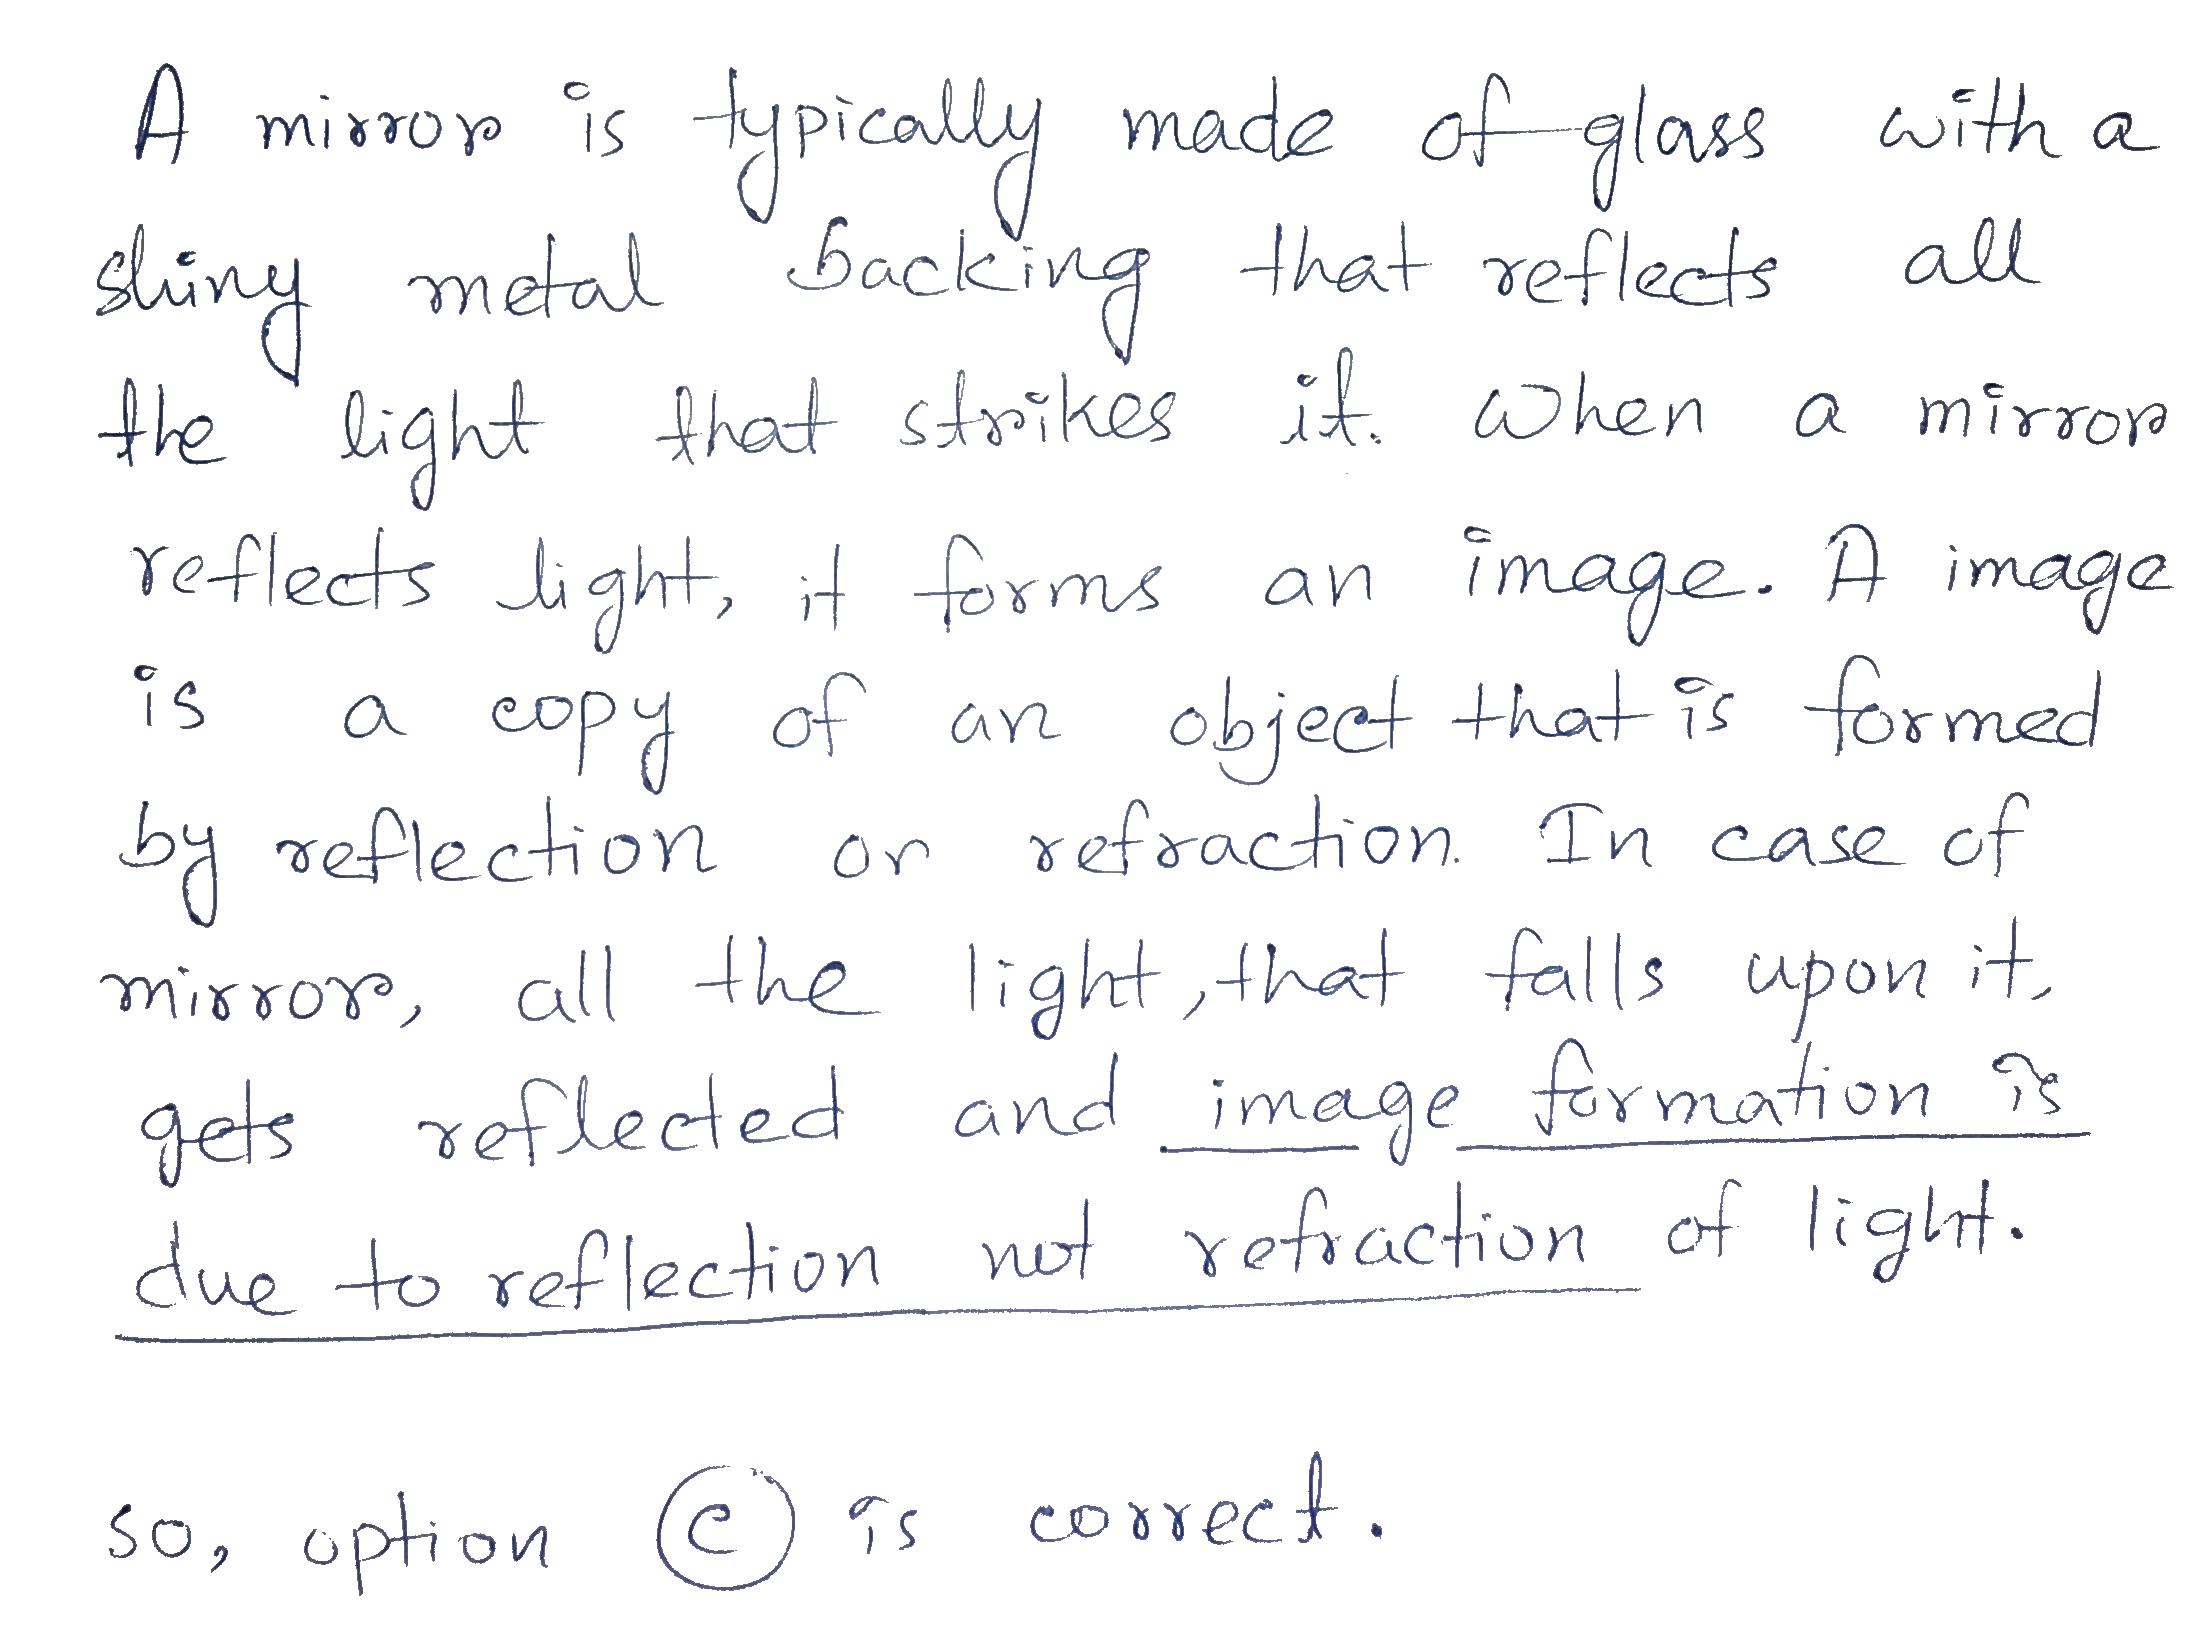 A mirror is typically made of glass with a
shiny metal backing that reflects all
the light that strikes it. When a mirror
reflects light, it forms an image. A image
is a copy of an object that is formed
by reflection or refraction. In case of
mirror, all the light, that falls upon it,
gets reflected and image formation is
due to reflection not refraction of light.
so, option c is correct.